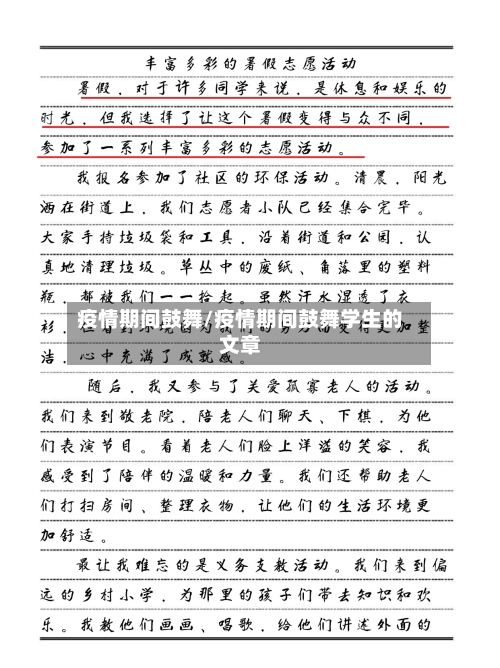 丰富多彩的暑假志愿活动
暑假，对于许多同学来说，是休息和娱乐的
时光，但我选择了让这个暑假变得与众不同，
参加了一系列丰富多彩的志愿活动。
我报名参加了社区的环保活动。清晨，阳光
洒在街道上，我们志愿者小队已经集合完毕。
大家手持垃圾袋和工具，沿着街道和公园，认
真地清理垃圾。草丛中的废纸、角落里的塑料
瓶，都被我们一一拾起。虽然汗水湿透了衣
疫情期间鼓舞/疫情期间鼓舞学生的
文章
衫，但看到环境因我们的努力而变得更加整
洁，心中充满了成就感。
随后，我又参与了关爱孤寡老人的活动。
我们来到敬老院，陪老人们聊天、下棋，为他
们表演节目。看着老人们脸上洋溢的笑容，我
感受到了陪伴的温暖和力量。我们还帮助老人
们打扫房间、整理衣物，让他们的生活环境更
加舒适。
最让我难忘的是义务支教活动。我们来到偏
远的乡村小学，为那里的孩子们带去知识和欢
乐。我教他们画画、唱歌，给他们讲述外面的